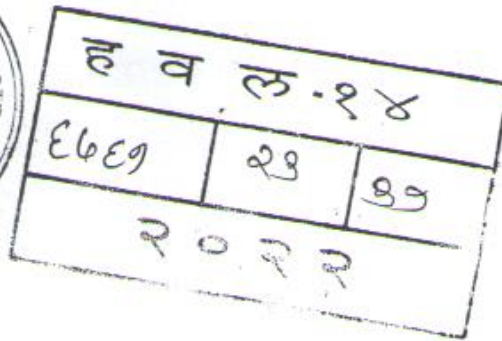 ह व ल - १४
६७६१ २३ ३१
२०२२